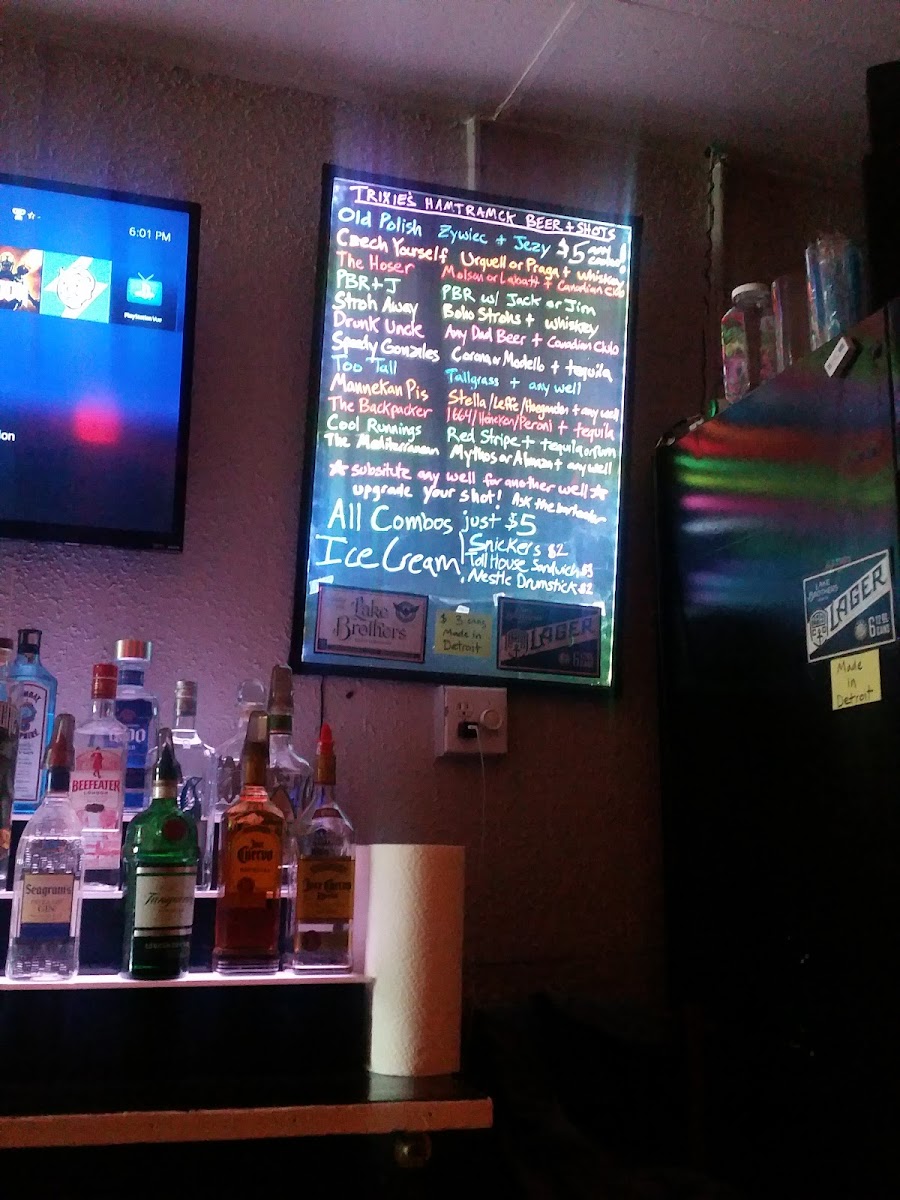 6:01 PM
PlayStation Vue
TRIXIE'S HAMTRAMCK BEER + SHOTS
Old Polish Zywiec + Jezy $5 any combo!
Czech Yourself Urquell or Praga + whiskey
The Hoser Molson or Labatt + Canadian Club
PBR + J PBR w/ Jack or Jim
Stroh Away Boho Strohs + whiskey
Drunk Uncle Any Dad Beer + Canadian Club
Speedy Gonzales Corona or Modello + tequila
Too Tall Tallgrass + any well
Mannekan Pis Stella/Leffe/Hoegaarden + any well
The Backpacker 1664/Heineken/Peroni + tequila
Cool Runnings Red Stripe + tequila or rum
The Mediterranean Mythos or Almaza + any well
☆ subsitute any well for another well ☆
upgrade your shot! Ask the bartender
All Combos just $5
Ice Cream
Snickers $2
Toll House Sandwich $3
Nestle Drumstick $2
Lake Brothers
$3 cans
Made in
Detroit
LAGER
LAKE BROTHERS
LAGER
6 12 OZ. CANS
Made
in
Detroit
BOMBAY
BEEFEATER
LONDON
Seagram's
GIN
Tanqueray
Jose
Cuervo
Jose Cuervo